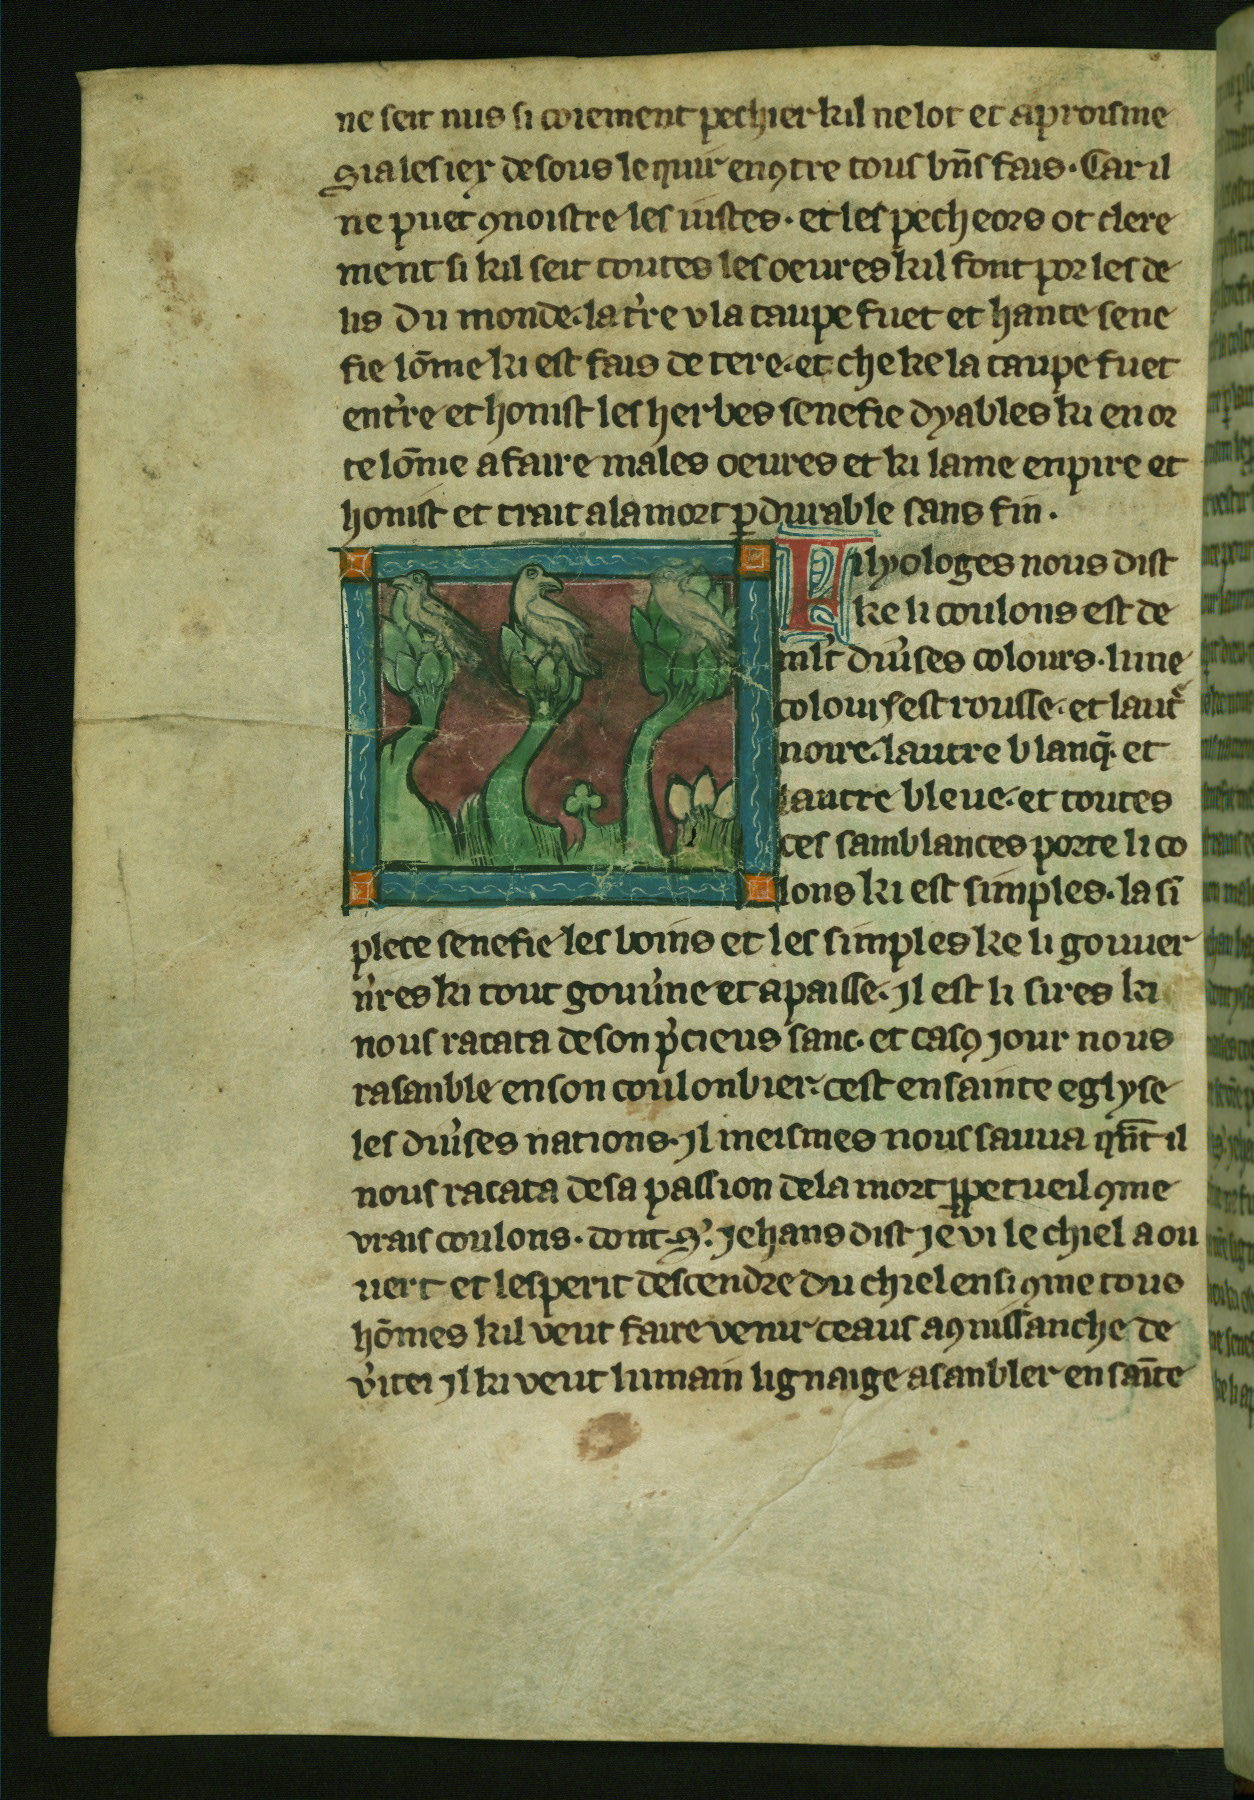 ne seit nus si coiement pechier kil nelot et aproisme
Si a les iex desous le quir en ꝯtre tous bn̄s fais. Car il
ne puet ꝯnoistre les iustes. et les pecheors ot clere
ment si kil seit toutes les oeures kil font por les de
lis du monde. la tr̄e v la taupe fuet et hante sene
fie lōme ki est fais de tere. et che ke la taupe fuet
en tr̄e et honist les herbes senefie dyables ki en or
te lōme a faire males oeures et ki lame enpire et
honist et trait a la mort ꝑdurable sans fin.
Filyologes nous dist
ke li coulons est de
ml̄t diu̓ses colours. lune
colours est rousse. et laut̓
noire. lautre blanq̄. et
lautre bleue. et toutes
ces samblances porte li co
lons ki est simples. la sī
plece senefie les boins et les simples ke li gouuer
n̓res ki tout gouu̓ne et apaisse. Il est li sires ki
nous racata de son p̓cieus sanc. et casꝯ iour nous
rasanble en son coulonbier. cest en sainte eglyse
les diu̓ses nations. Il meismes nous sauua qn̄t il
nous racata de sa passion de la mort ꝑpetueil ꝯme
vrais coulons. dont .S'. Jehans dist Je vi le chiel aou
uert et lesperit descendre du chiel ensi ꝯme tous
hōmes kil veut faire venir ceaus a ꝯnissanche de
v̓itei Il ki veut lumain lignaige asanbler en saīte